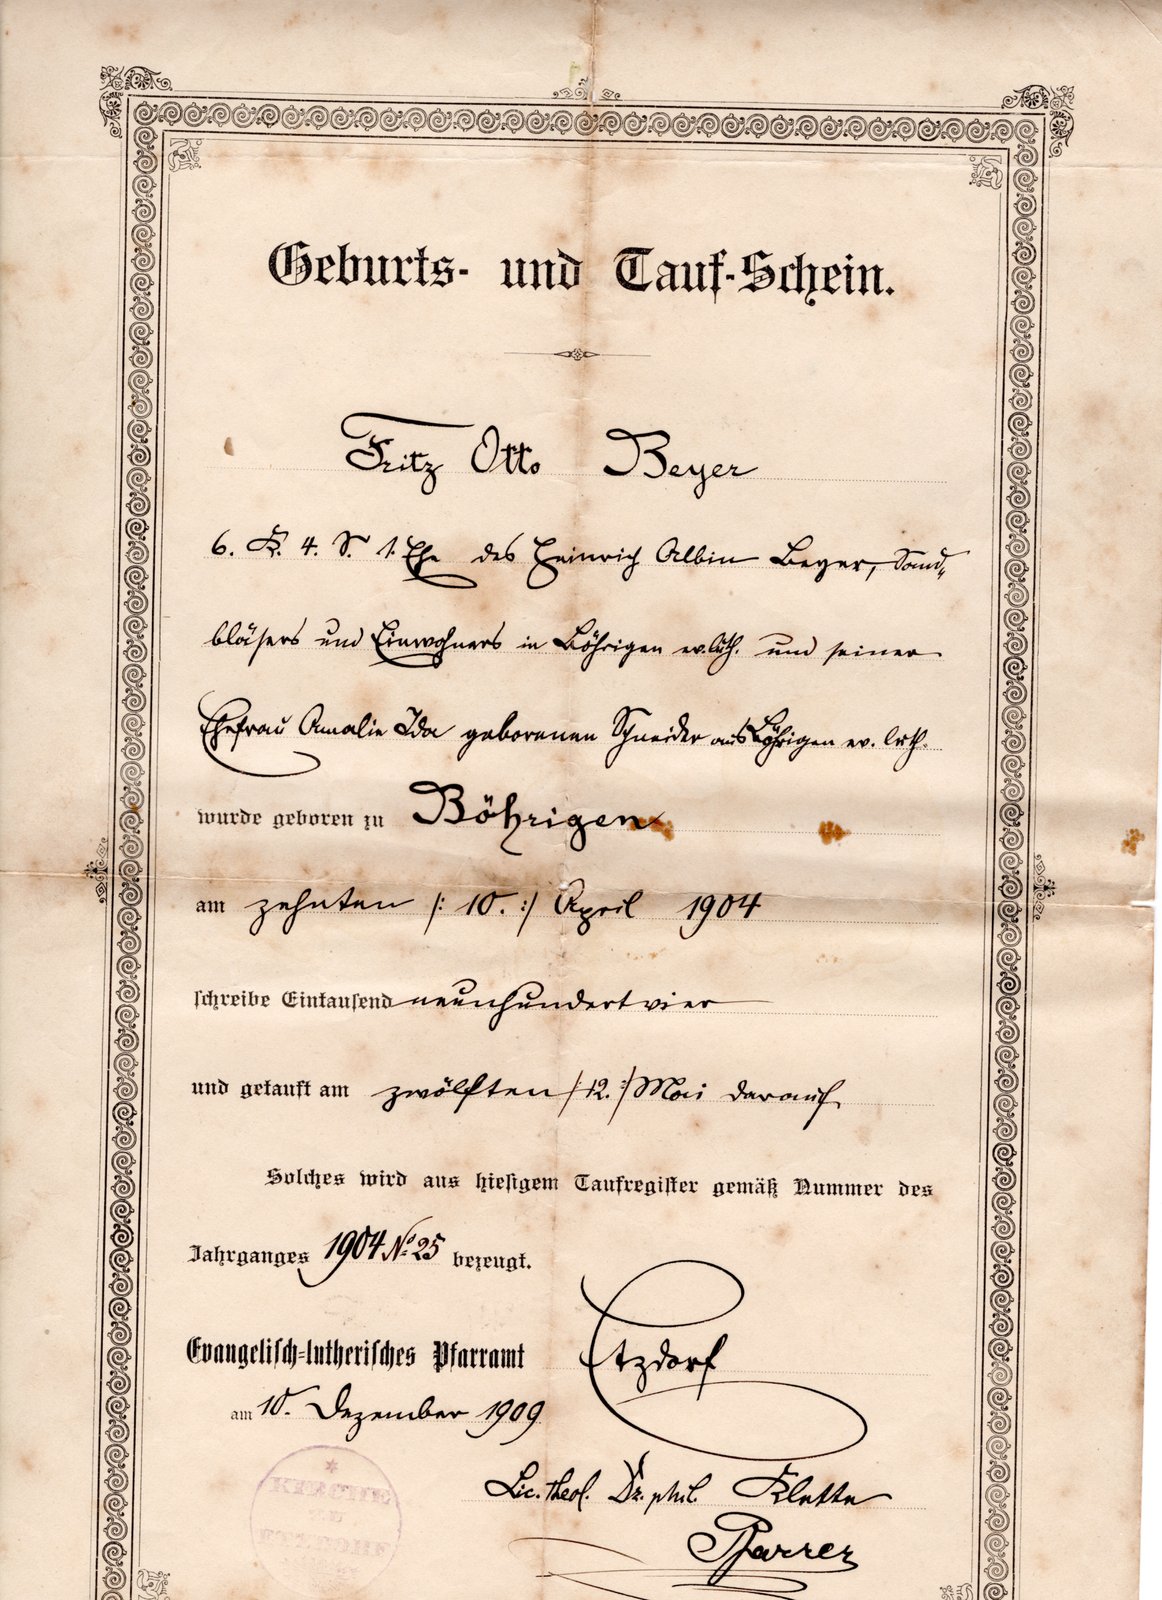 Geburts- und Tauf-Schein.
Fritz Otto Beyer
6. K. 4. S. 1. Ehe des Heinrich Albin Beyer, Sand-
bläsers und Einwohners in Böhrigen ev. luth. und seiner
Ehefrau Amalie Ida geborenen Schneider aus Böhrigen ev. luth.
wurde geboren zu Böhrigen
am zehnten /: 10. :/ April 1904
schreibe Eintausend neunhundertvier
und getauft am zwölften /: 12. :/ Mai darauf.
Solches wird aus hiesigem Taufregister gemäß Nummer des
Jahrganges 1904 No 25 bezeugt.
Evangelisch-lutherisches Pfarramt Etzdorf
am 10. Dezember 1909
Lic. theol. Dr. phil. Klette
Pfarrer
KIRCHE
ZU
ETZDORF